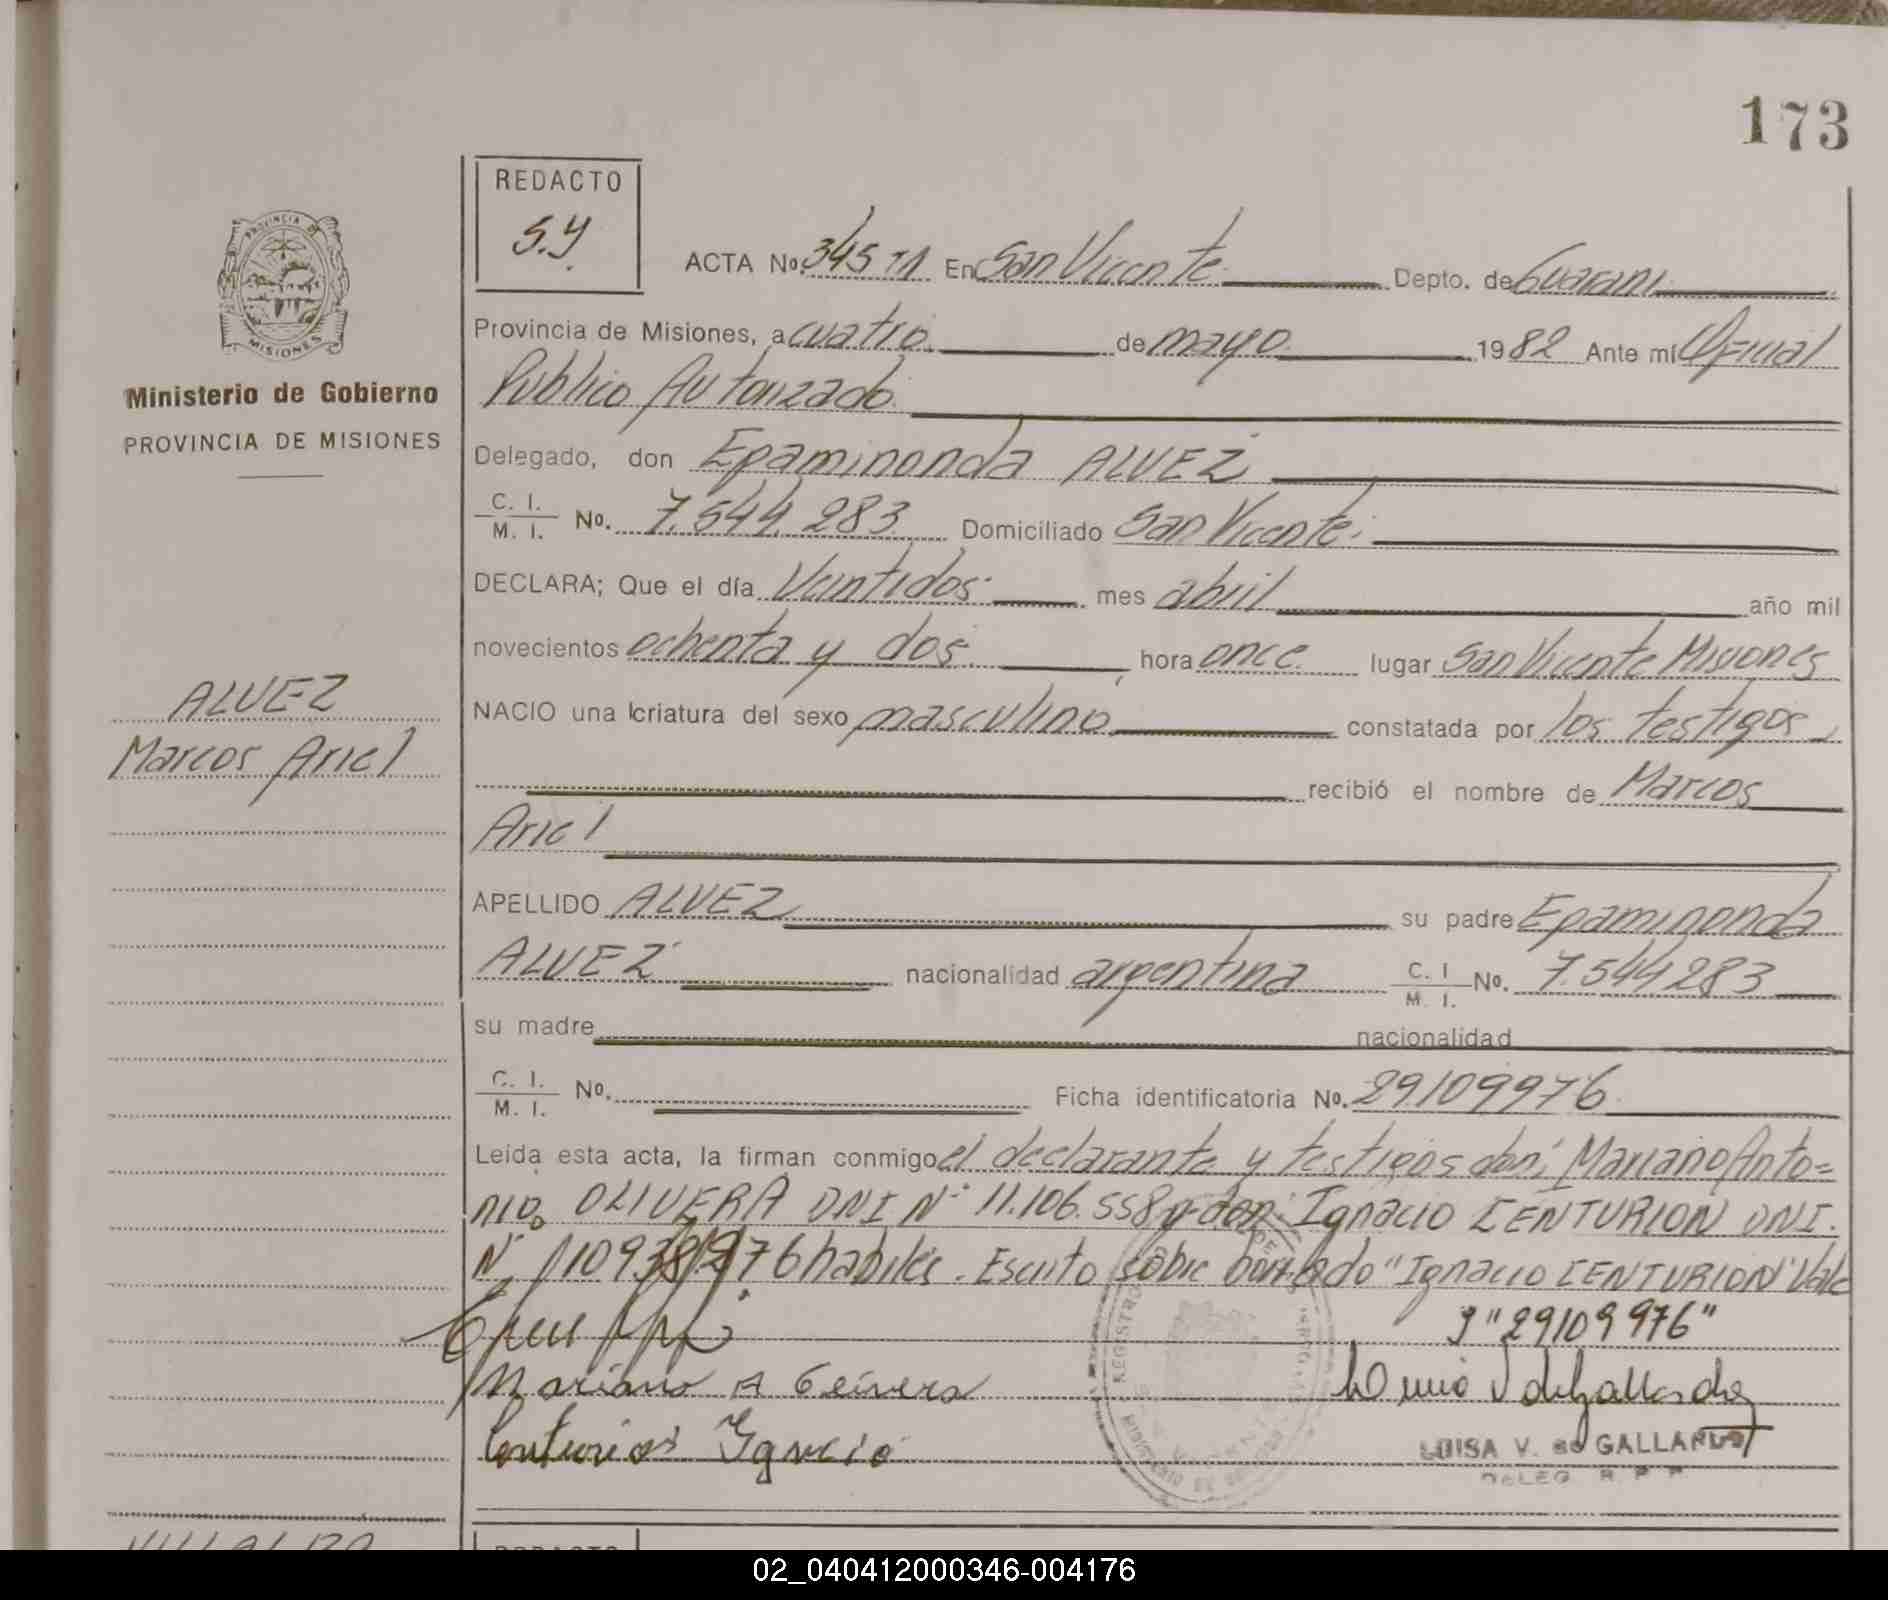 173
REDACTO
S.Y.
PROVINCIA DE
MISIONES
Ministerio de Gobierno
PROVINCIA DE MISIONES
ALVEZ
Marcos Ariel
ACTA No. 345 En San Vicente Depto. de Guarani
Provincia de Misiones, a cuatro de mayo 1982 Ante mí Oficial
Publico Autorizado
Delegado, don Epaminonda ALVEZ
C. I. / M. I. No. 7.544.283 Domiciliado San Vicente
DECLARA; Que el día Veintidos mes abril año mil
novecientos ochenta y dos hora once lugar San Vicente Misiones
NACIO una criatura del sexo masculino constatada por los testigos
recibió el nombre de Marcos
Ariel
APELLIDO ALVEZ su padre Epaminonda
ALVEZ nacionalidad argentina C. I / M. I. No. 7.544283
su madre nacionalidad
C. I. / M. I. No. Ficha identificatoria No. 29109976
Leída esta acta, la firman conmigo el declarante y testigos don: Mariano Anto=
nio OLIVERA DNI N° 11.106.558 y don: Ignacio CENTURION DNI.
N° habiles. Escrito sobre borrado "Ignacio CENTURION" Vale
y "29109976"
Mariano A Oeivera
Centurion Ignacio
LUISA V. de GALLARDO
DELEG R P P
REDACTO
VILLALBA
02_040412000346-004176